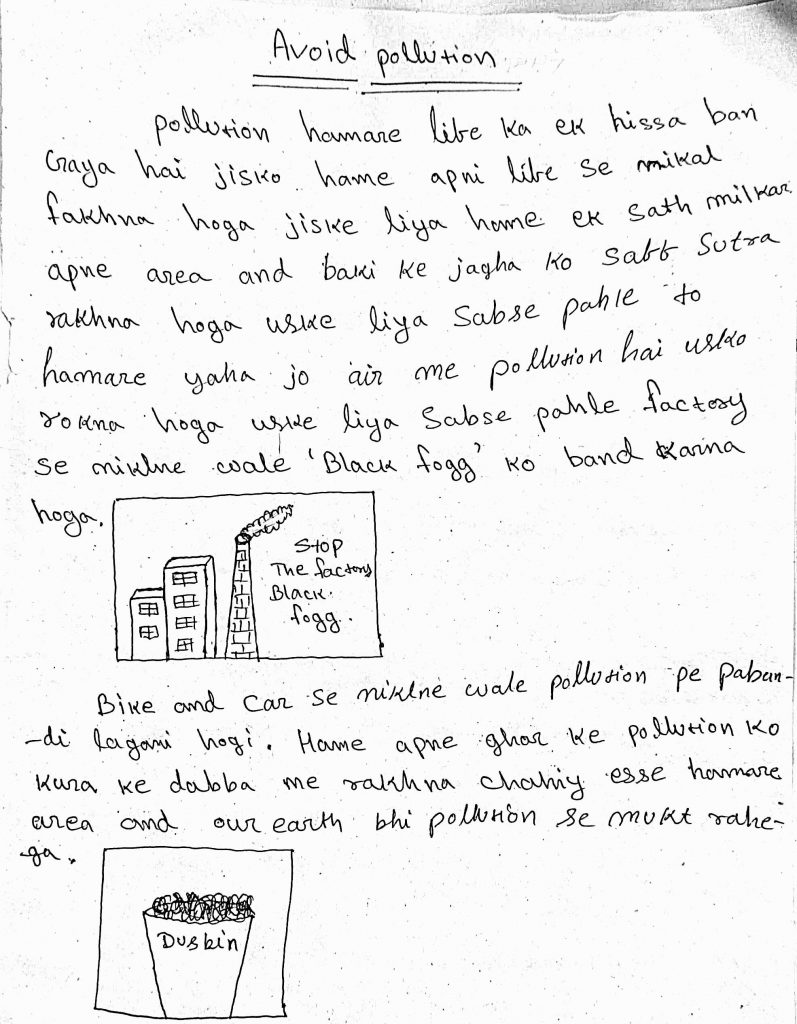 Avoid pollution
pollution hamare libe ka ek hissa ban
Graya hai jisko hame apni libe se nikal
fakhna hoga jiske liya hame ek sath milkar
apne area and baki ke jagha ko sabb sutra
rakhna hoga uske liya sabse pahle to
hamare yaha jo air me pollution hai usko
rokna hoga uske liya sabse pahle factory
se niklne wale 'Black fogg' ko band karna
hoga.
Stop
The factory
Black
fogg.
Bike and Car se niklne wale pollution pe paban-
-di lagani hogi. Hame apne ghar ke pollution ko
kura ke dabba me rakhna chahiy esse hamare
area and our earth bhi pollution se mukt rahe-
-ga.
Dusbin